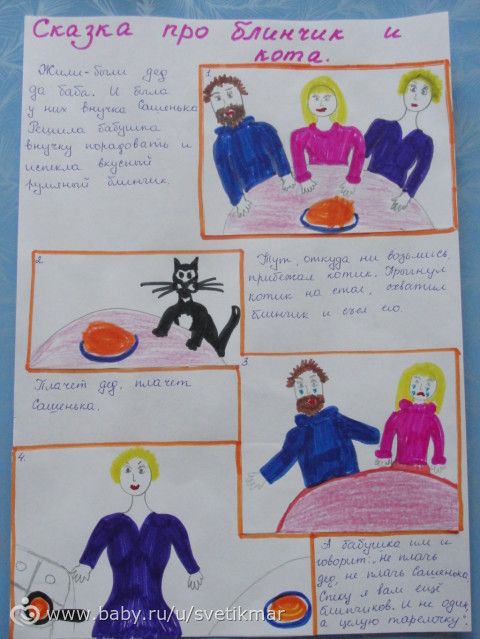 Сказка про блинчик и
кота.
Жили-были дед
да баба. И была
у них внучка Сашенька
Решила бабушка
внучку порадовать и
испекла вкусный
румяный блинчик.
1
2.
Тут, откуда ни возьмись,
прибежал котик. Прыгнул
котик на стол, схватил
блинчик и съел его.
Плачет дед, плачет
Сашенька.
3
4.
А бабушка им и
говорит: "Не плачь
дед, не плачь Сашенька,
Спеку я вам ещё
блинчиков. И не один,
а целую тарелочку".
www.baby.ru/u/svetikmar